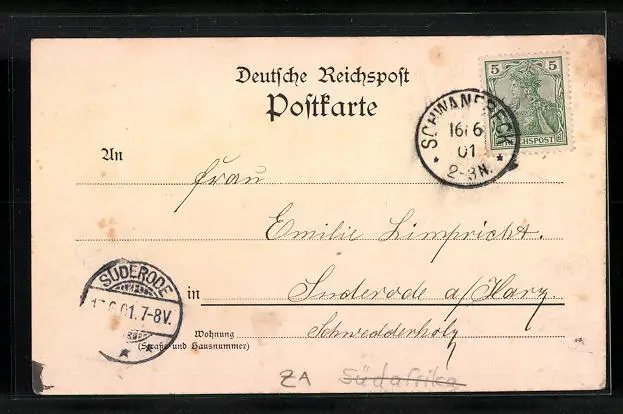 Deutsche Reichspost
Postkarte
5 5
REICHSPOST
SCHWANEBECK
16/6
01
2-3N.
An
Frau
Emilie Limpricht.
SUDERODE
17.6.01.7-8V.
in Suderode a/Harz.
Schwedderholz
Wohnung
(Straße und Hausnummer)
ZA Südafrika